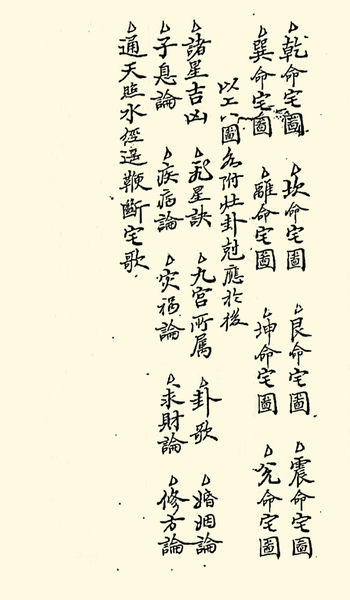 △乾命宅圖 △坎命宅圖 △艮命宅圖 △震命宅圖
△巽命宅圖 △離命宅圖 △坤命宅圖 △兌命宅圖
以上八圖各附灶卦剋應於後
△諸星吉凶 △九星訣 △九宮所属 △卦歌 △婚姻論
△子息論 △疾病論 △灾禍論 △求財論 △修方論
△通天照水經逕鞭斷宅歌